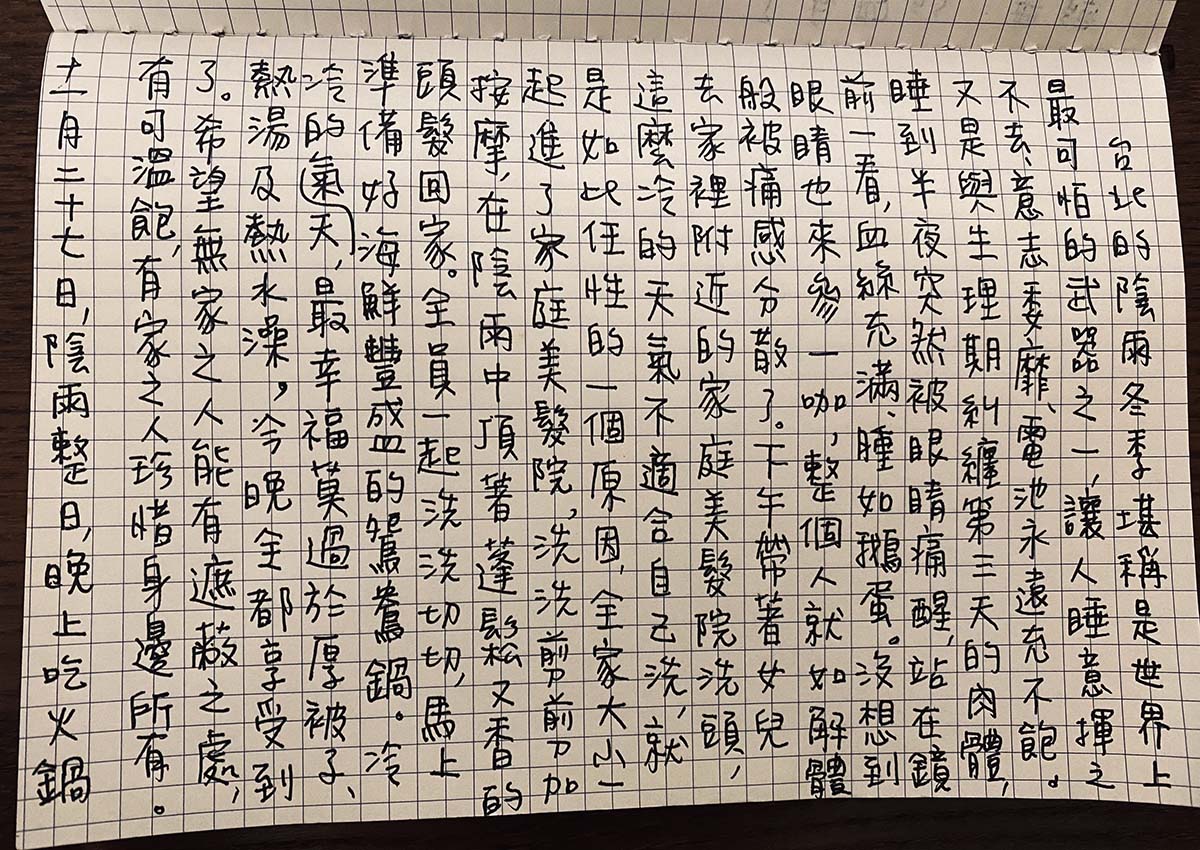 台北的陰雨冬季堪稱是世界上
最可怕的武器之一，讓人睡意揮之
不去、意志委靡、電池永遠充不飽。
又是與生理期糾纏第三天的肉體，
睡到半夜突然被眼睛痛醒，站在鏡
前一看，血絲充滿、腫如鵝蛋。沒想到
眼睛也來參一咖，整個人就如解體
般被痛感分散了。下午帶著女兒
去家裡附近的家庭美髮院洗頭，
這麼冷的天氣不適合自己洗，就
是如此任性的一個原因，全家大小一
起進了家庭美髮院，洗洗剪剪加
按摩，在陰雨中頂著蓬鬆又香的
頭髮回家。全員一起洗洗切切，馬上
準備好海鮮豐盛的鴛鴦鍋。冷
冷的氣天，最幸福莫過於厚被子、
熱湯及熱水澡，今晚全都享受到
了。希望無家之人能有遮蔽之處，
有可溫飽，有家之人珍惜身邊所有。
十二月二十七日，陰雨整日，晚上吃火鍋